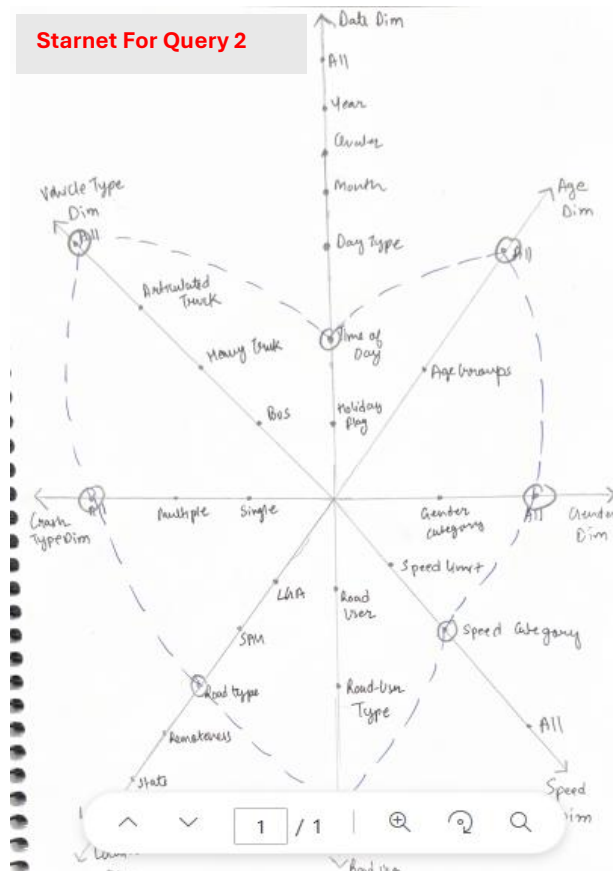 Starnet For Query 2
Date Dim
All
Year
Month
Day Type
Time of
Day
Holiday
Flag
Vehicle Type
Dim
All
Articulated
Truck
Heavy Truck
Bus
Age
Dim
All
Age Groups
Crash
Type Dim
All
Multiple
Single
Gender
Category
All
Gender
Dim
Speed Limit
Speed Category
All
Speed
Dim
LGA
Road type
Remoteness
State
Road
User
Road-User
Type
1 / 1